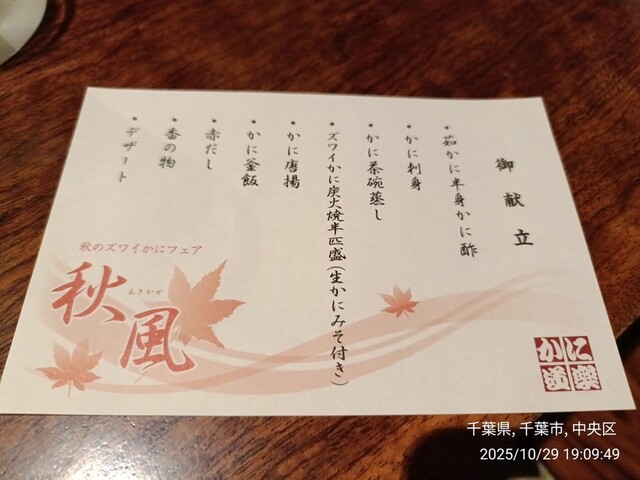 御献立
・茹かに半身かに酢
・かに刺身
・かに茶碗蒸し
・ズワイかに炭火焼半匹盛(生かにみそ付き)
・かに唐揚
・かに釜飯
・赤だし
・香の物
・デザート
秋のズワイかにフェア
秋風
あきかぜ
かに
道楽
千葉県, 千葉市, 中央区
2025/10/29 19:09:49